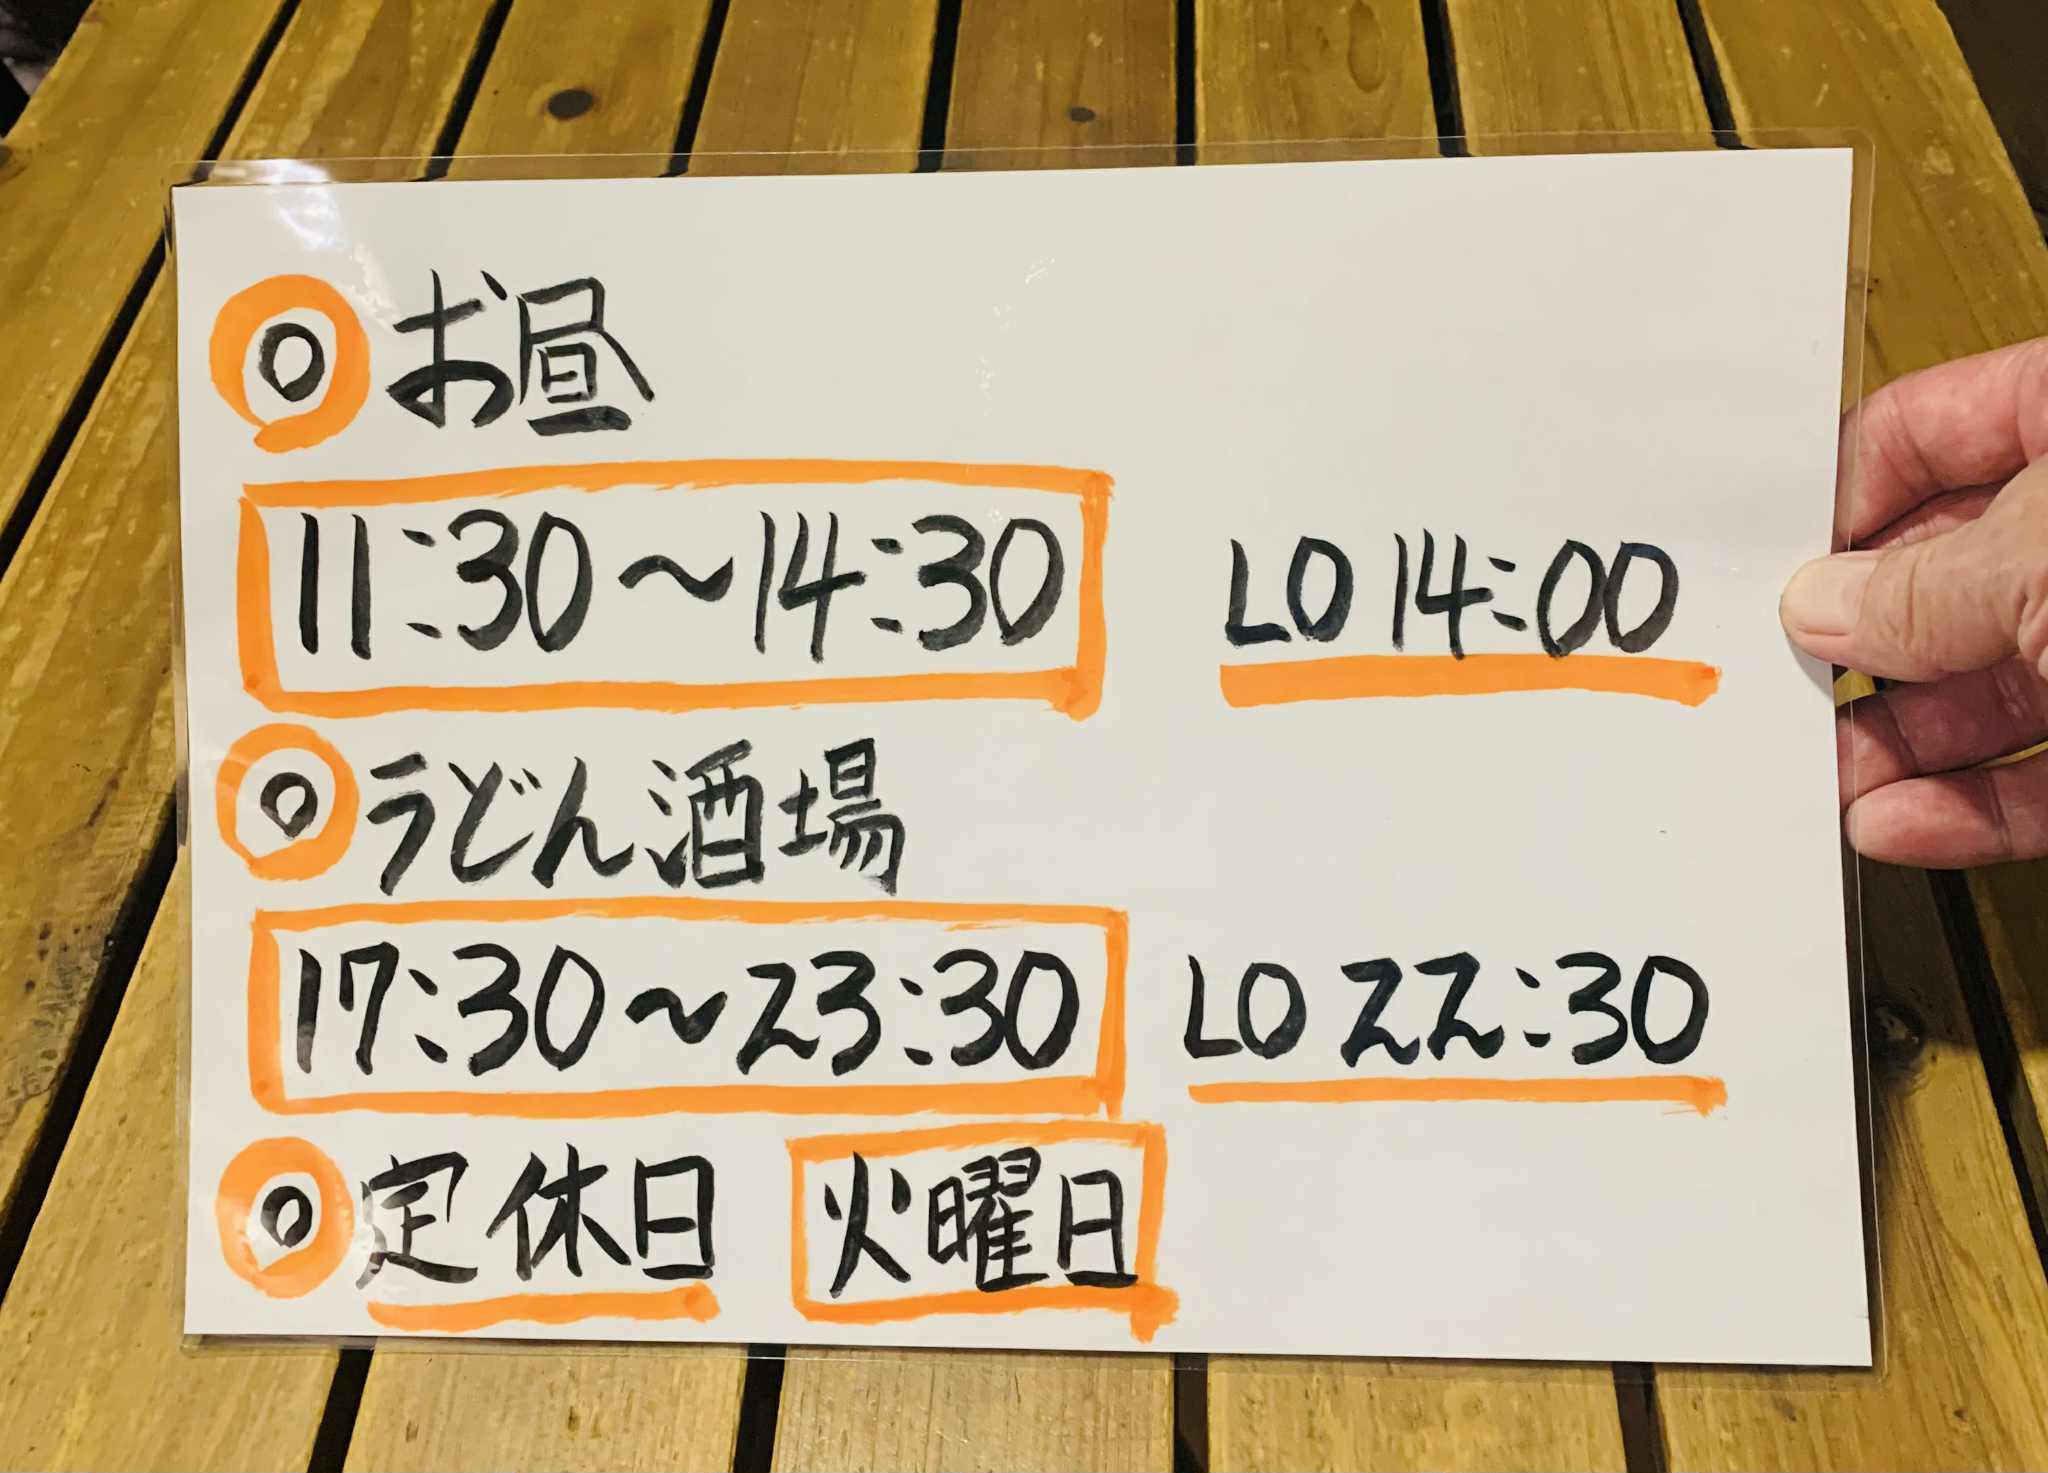 ○ お昼
11:30～14:30 LO 14:00
○ うどん酒場
17:30～23:30 LO 22:30
○ 定休日 火曜日